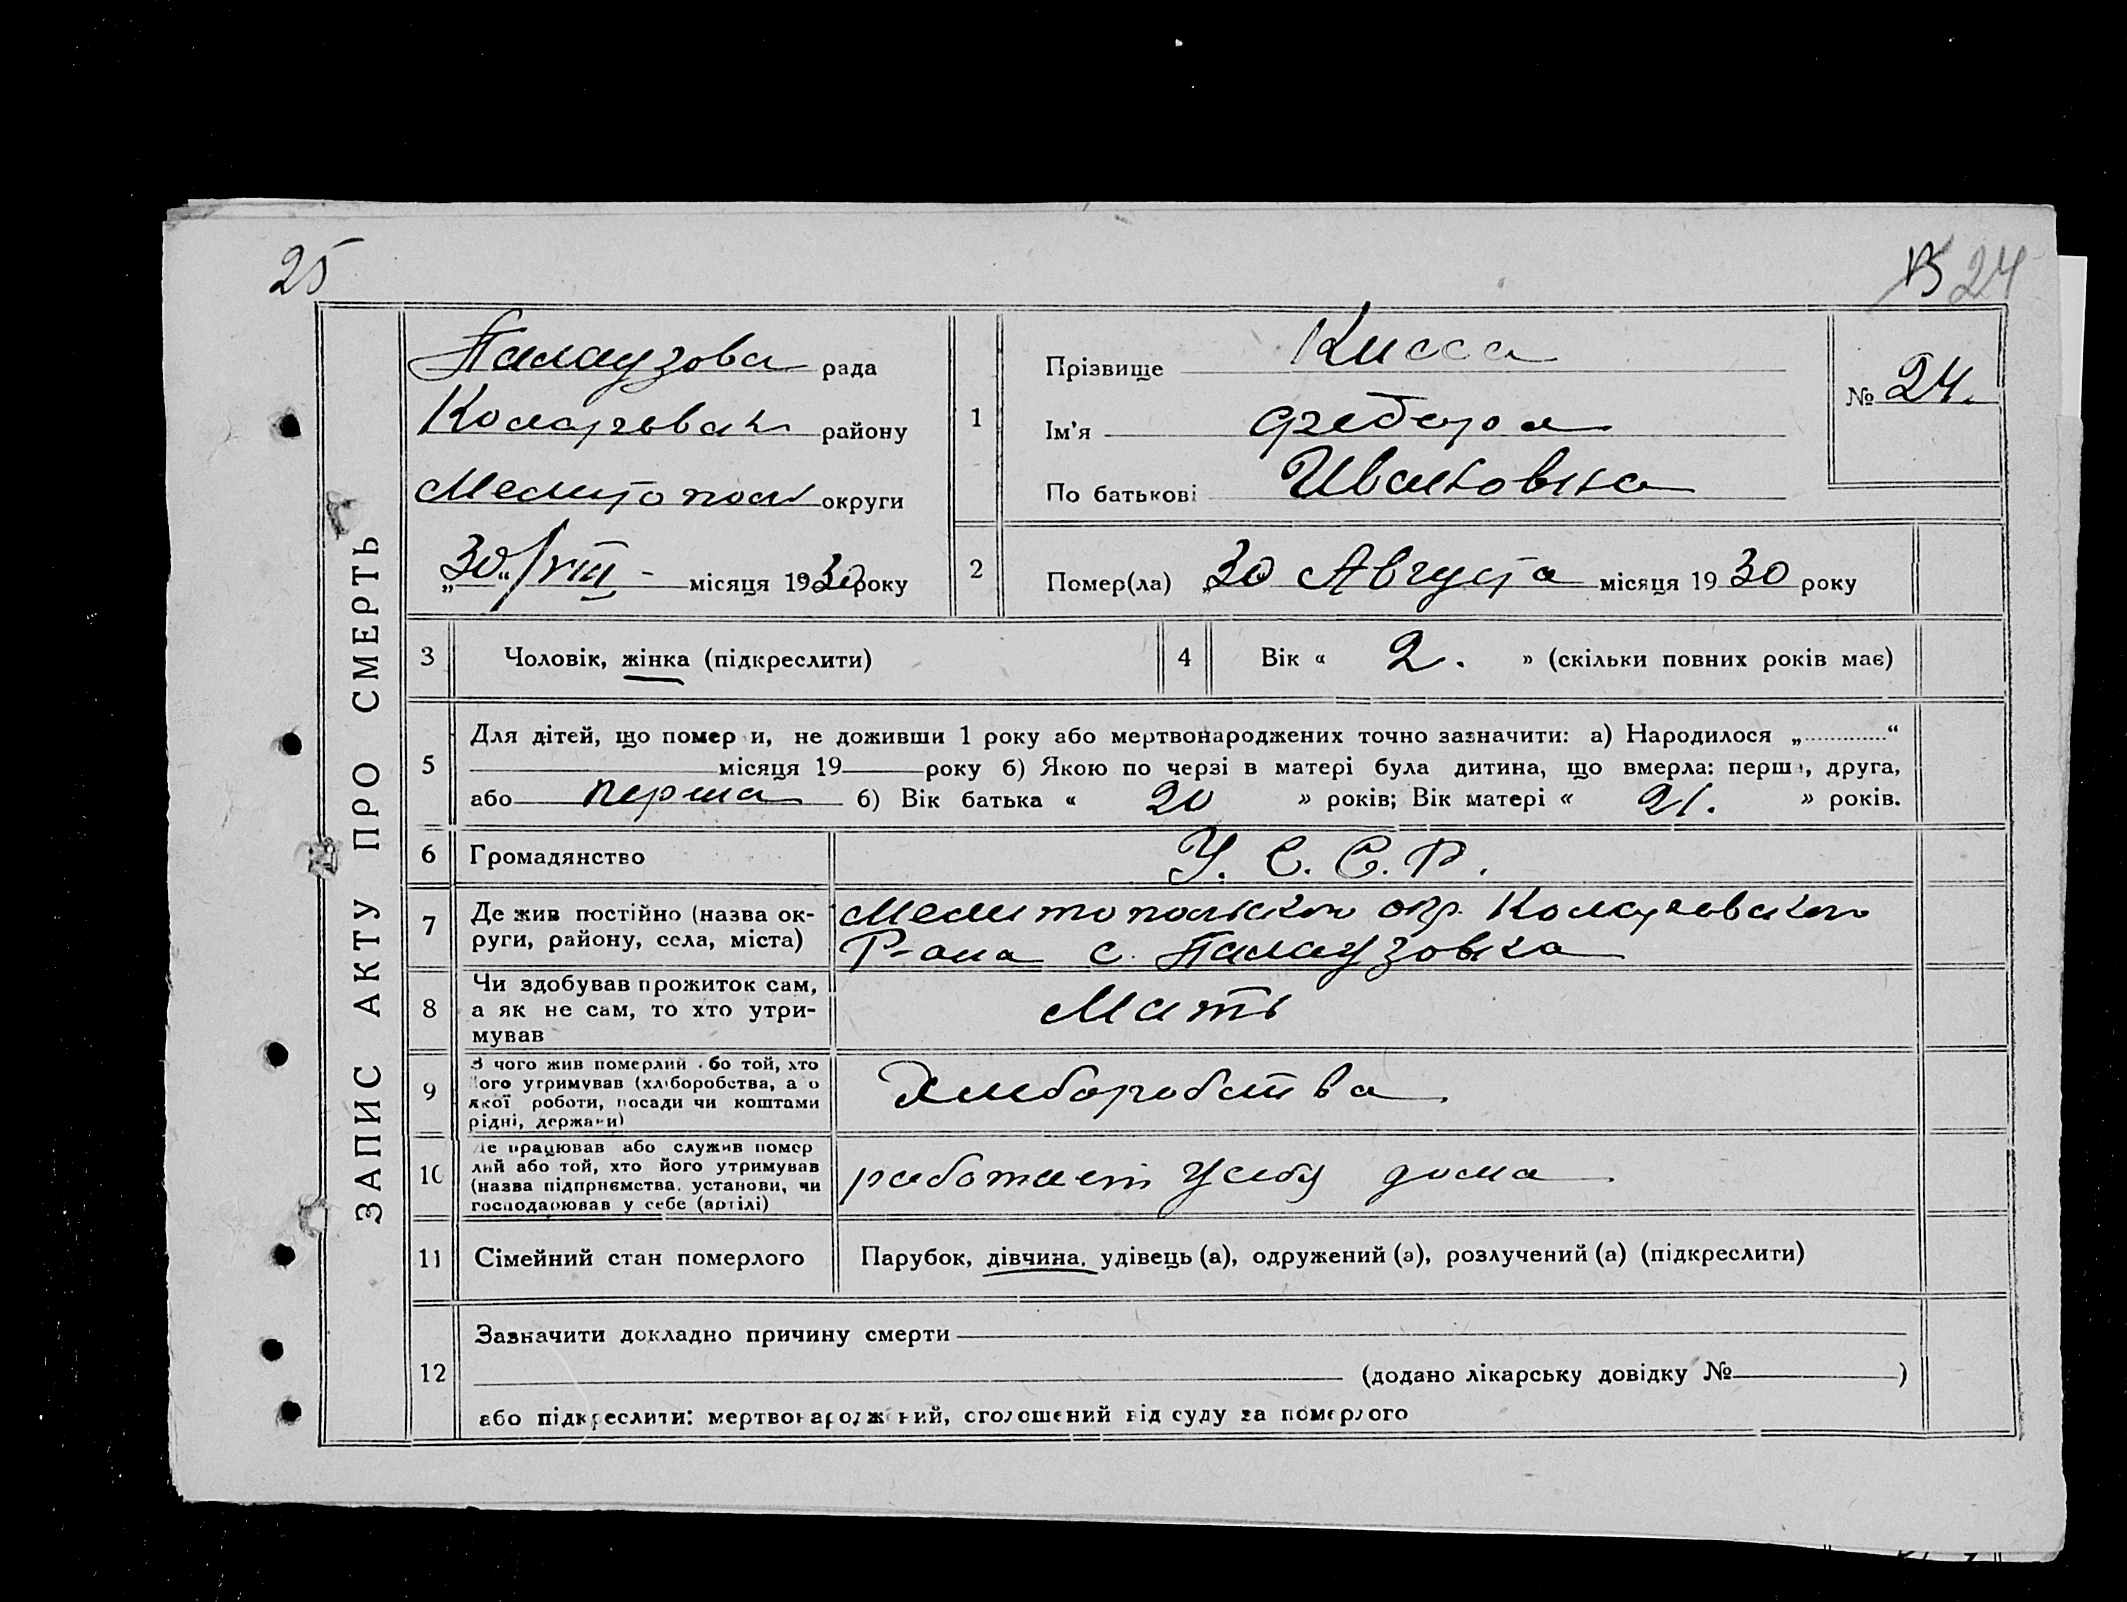 25
24
ЗАПИС АКТУ ПРО СМЕРТЬ
Палаузова рада
району
Мелитопол округи
„30“/VIII - місяця 1930 року
1
Прізвище Кисса
Ім'я Федора
По батькові Ивановна
№ 24.
2
Помер(ла) „30 Августа місяця 1930 року
3 Чоловік, жінка (підкреслити)
4 Вік « 2. » (скільки повних років має)
5
Для дітей, що померли, не доживши 1 року або мертвонароджених точно зазначити: а) Народилося „ “
місяця 19 року б) Якою по черзі в матері була дитина, що вмерла: перша, друга,
або перша б) Вік батька « 20 » років; Вік матері « 21. » років.
6 Громадянство У. С. С. Р.
7
Де жив постійно (назва ок-
руги, району, села, міста)
Мелитопольского окр.
Р-она с. Палаузовка
8
Чи здобував прожиток сам,
а як не сам, то хто утри-
мував
Мать
9
З чого жив померлий або той, хто
його утримував (хліборобства, а о
якої роботи, посади чи коштами
рідні, держави)
Хлиборобства
10
Де працював або служив помер
лий або той, хто його утримував
(назва підприємства, установи, чи
господарював у себе (артілі)
работает усебя дома
11 Сімейний стан померлого
Парубок, дівчина, удівець (а), одружений (а), розлучений (а) (підкреслити)
12
Зазначити докладно причину смерти
(додано лікарську довідку № )
або підкреслити: мертвонароджений, оголошений від суду за померлого